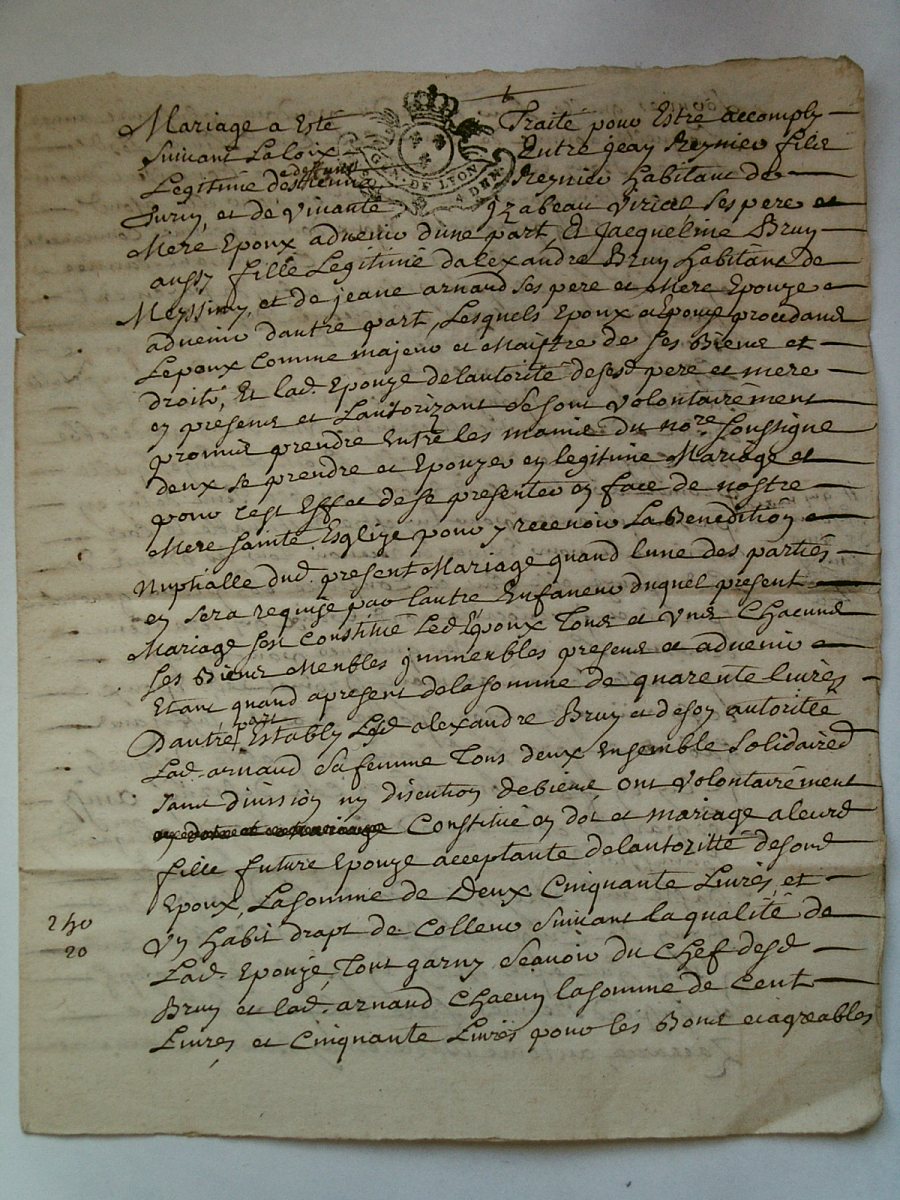 Mariage a Esté Traité pour Estre accomply
Suivant La loix Entre jean Reynier filz
adeffunt
Legitime destienne Reynier habitant de
G. DE LYON
et de vivante Izabeau Viricel ses pere et
Mere Epoux advenir dune part, Et Jacqueline Bruy
aussy fille Legitime dalexandre Bruy habitant de
Meyssimy, et de jeane arnaud ses pere et Mere Epouze
advenir dautre part, Lesquels Epoux et Epouze procedant
Lepoux Comme majeur et Maistre de ses Biens et
droits, Et lad. Epouze delautorité desesd. pere et mere
ey presens et Lautorizant se sont volontairement
promis prendre Entre les mains du nore. soussigné
deux se prendre et Epouzer ey legitime Mariage et
pour cest Effet de se presenter ey face de nostre
Mere sainte Esglize pour y recevoir La Benedition
Nuptialle dud. present Mariage quand lune des parties
ey sera requise par lautre Enfaveur duquel present
Mariage sest Constitué Led. Epoux Tous et Uns Chacuns
Ses Biens Meubles jmmeubles presens et advenir
Etant quand apresent delasomme de quarente livres
part
Dautre Estably Led. alexandre Bruy et desoy autoritée
Lad. arnaud sa femme Tous deux Ensemble solidaires
sans division ny discution debiens ont volontairement
Constitué ey dot et mariage aleurs
fille future Epouze acceptante delautoritté desond
Epoux, Lasomme de Deux Cinquante Livres, et
240
Uy habit drapt de Colleur suivant la qualité de
20
Lad. Epouze, Tout garny, Scavoir du Chef desd
Bruy et lad. arnaud Chacuy lasomme de Cent
Livres et Cinquante Livres pour les Bons et agreables